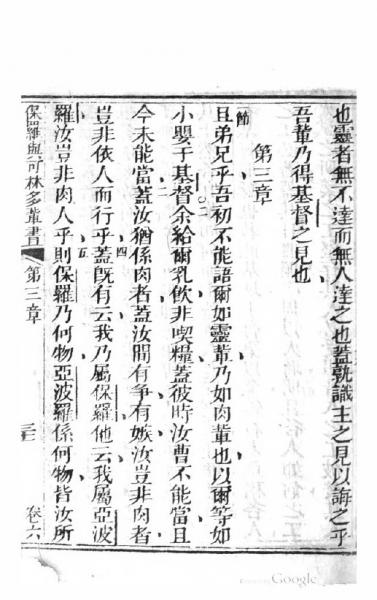 也靈者無不達而無人達之也蓋孰識主之見以誨之乎
吾輩乃得基督之見也
第三章
一節
且弟兄乎吾初不能語爾如靈輩乃如肉輩也以爾等如
小嬰于基督余給爾乳飲非喫糧蓋彼時汝曹不能當且
二
今未能當蓋汝猶係肉者蓋汝間有爭有嫉汝豈非肉者
三
豈非依人而行乎蓋既有云我乃屬保羅他云我屬亞波
四
羅汝豈非肉人乎則保羅乃何物亞波羅係何物皆汝所
五
保羅與可林多輩書
第三章
三
卷六
Google